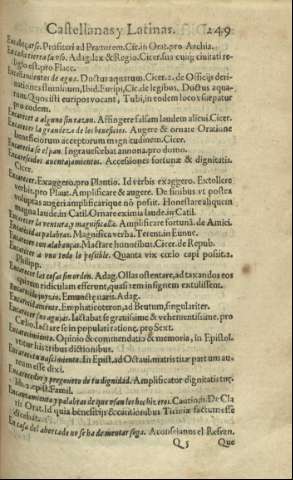 Castellanas y Latinas. 249
Profiteri ad Prætorem. Cic. in Orat. pro Archia.
Cada tierra su uso. Adag. lex & Regio. Cicer. sus cuiq; ciuitati re-
ligio est, pro Flacc.
de agua. Ductus aquarum. Cicer. 2. de Officijs deri-
uationes fluminum, Ibid. Euripi, Cic. de legibus. Ductus aqua-
rum, Quos isti euripos vocant, Tubi, in eodem loco vsurpatur
pro eodem.
Encarecer a alguno sin razon. Affingere falsam laudem alicui. Cicer.
Encarecer la grandeza de los beneficios. Augere & ornate Oratione
beneficiorum acceptorum magnitudinem. Cicer.
el pan. Ingrauescebat annona. pro domo.
auentajamientos. Accessiones fortunæ & dignitatis.
Cicer.
Encarecer. Exaggero. pro Plantio. Id verbis exaggero. Extollere
verbis, pro Plauc. Amplificare & augere. De finibus vt postea
voluptas augeri amplificarique nō possit. Honestare aliquem
magna laude. in Catil. Ornare eximia laude. in Catil.
Encarecer la ventura, y magnificalla. Amplificare fortunā. de Amici.
palabras. Magnifica verba. Teren. in Eunuc.
Encarecer con alabanças. Mactare honoribus. Cicer. de Repub.
Encarecer a vno todo lo possible. Quanta vix cœlo capi possit. 2.
Philipp.
Encarecer las cosas sin orden. Adag. Ollas ostentare, ad taxandos eos
qui rem ridiculam efferent, quasi rem insignem extulissent.
Emunctę naris. Adag.
Emphaticoteron, ad Beatum, singulariter.
Iactabat se grauissimè & vehementissime. pro
Cælio. Iactare se in populi ratione. pro Sext.
Opinio & commendatio & memoria, in Epistol.
vtitur his tribus dictionibus.
nascimiento. In Epist. ad Octaui. matris tuæ partum au-
tem esse dixi.
y pregonero de tu dignidad. Amplificator dignitatis tuę.
lib. 10. epist. Famil.
Encantamento y palabras de que vsan los hechizeros. Cautio. De Cla
ris Orat. Id quia beneficijs & cautionibus Titiniæ factum esse
dicebat.
En casa del ahorcado no se ha de mentar soga. Aconsejanos el Refran,
Q 5 Que